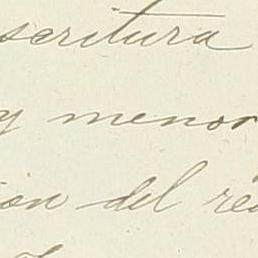 scritura
y menor
ion del re